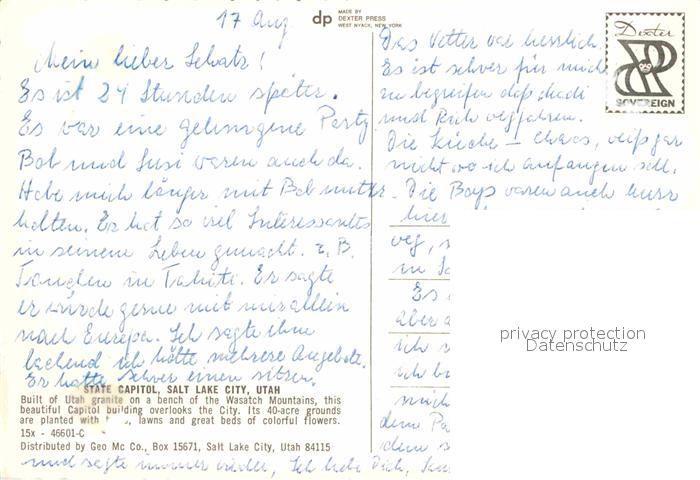 17 Aug
dp MADE BY
DEXTER PRESS
WEST NYACK, NEW YORK
Mein lieber Schatz!
Es ist 24 Stunden später.
Es war eine gelungene Party
Bob und Susi waren auch da.
Habe mich länger mit Bob unter-
halten. Er hat so viel Interessantes
in seinem Leben gemacht. z. B.
Tauchen in Tahiti. Er sagte
er würde gerne mit mir allein
nach Europa. Ich sagte ihm
lachend ich hätte mehrere Angebote.
Er hatte schwer einen sitzen.
STATE CAPITOL, SALT LAKE CITY, UTAH
Built of Utah granite on a bench of the Wasatch Mountains, this
beautiful Capitol building overlooks the City. Its 40-acre grounds
are planted with lawns and great beds of colorful flowers.
15x - 46601-C
Distributed by Geo Mc Co., Box 15671, Salt Lake City, Utah 84115
und sagte immer wieder, Ich liebe Dich,
Das Wetter war herrlich.
Es ist schwer für mich
zu begreifen daß
und Rich wegfahren.
Die Küche – Chaos, weiß gar
nicht wo ich anfangen soll.
Die Boys waren auch kurz
hier
weg,
in
Es
aber
ich
ich
mich
dem
dem
Dexter
SOVEREIGN
privacy protection
Datenschutz